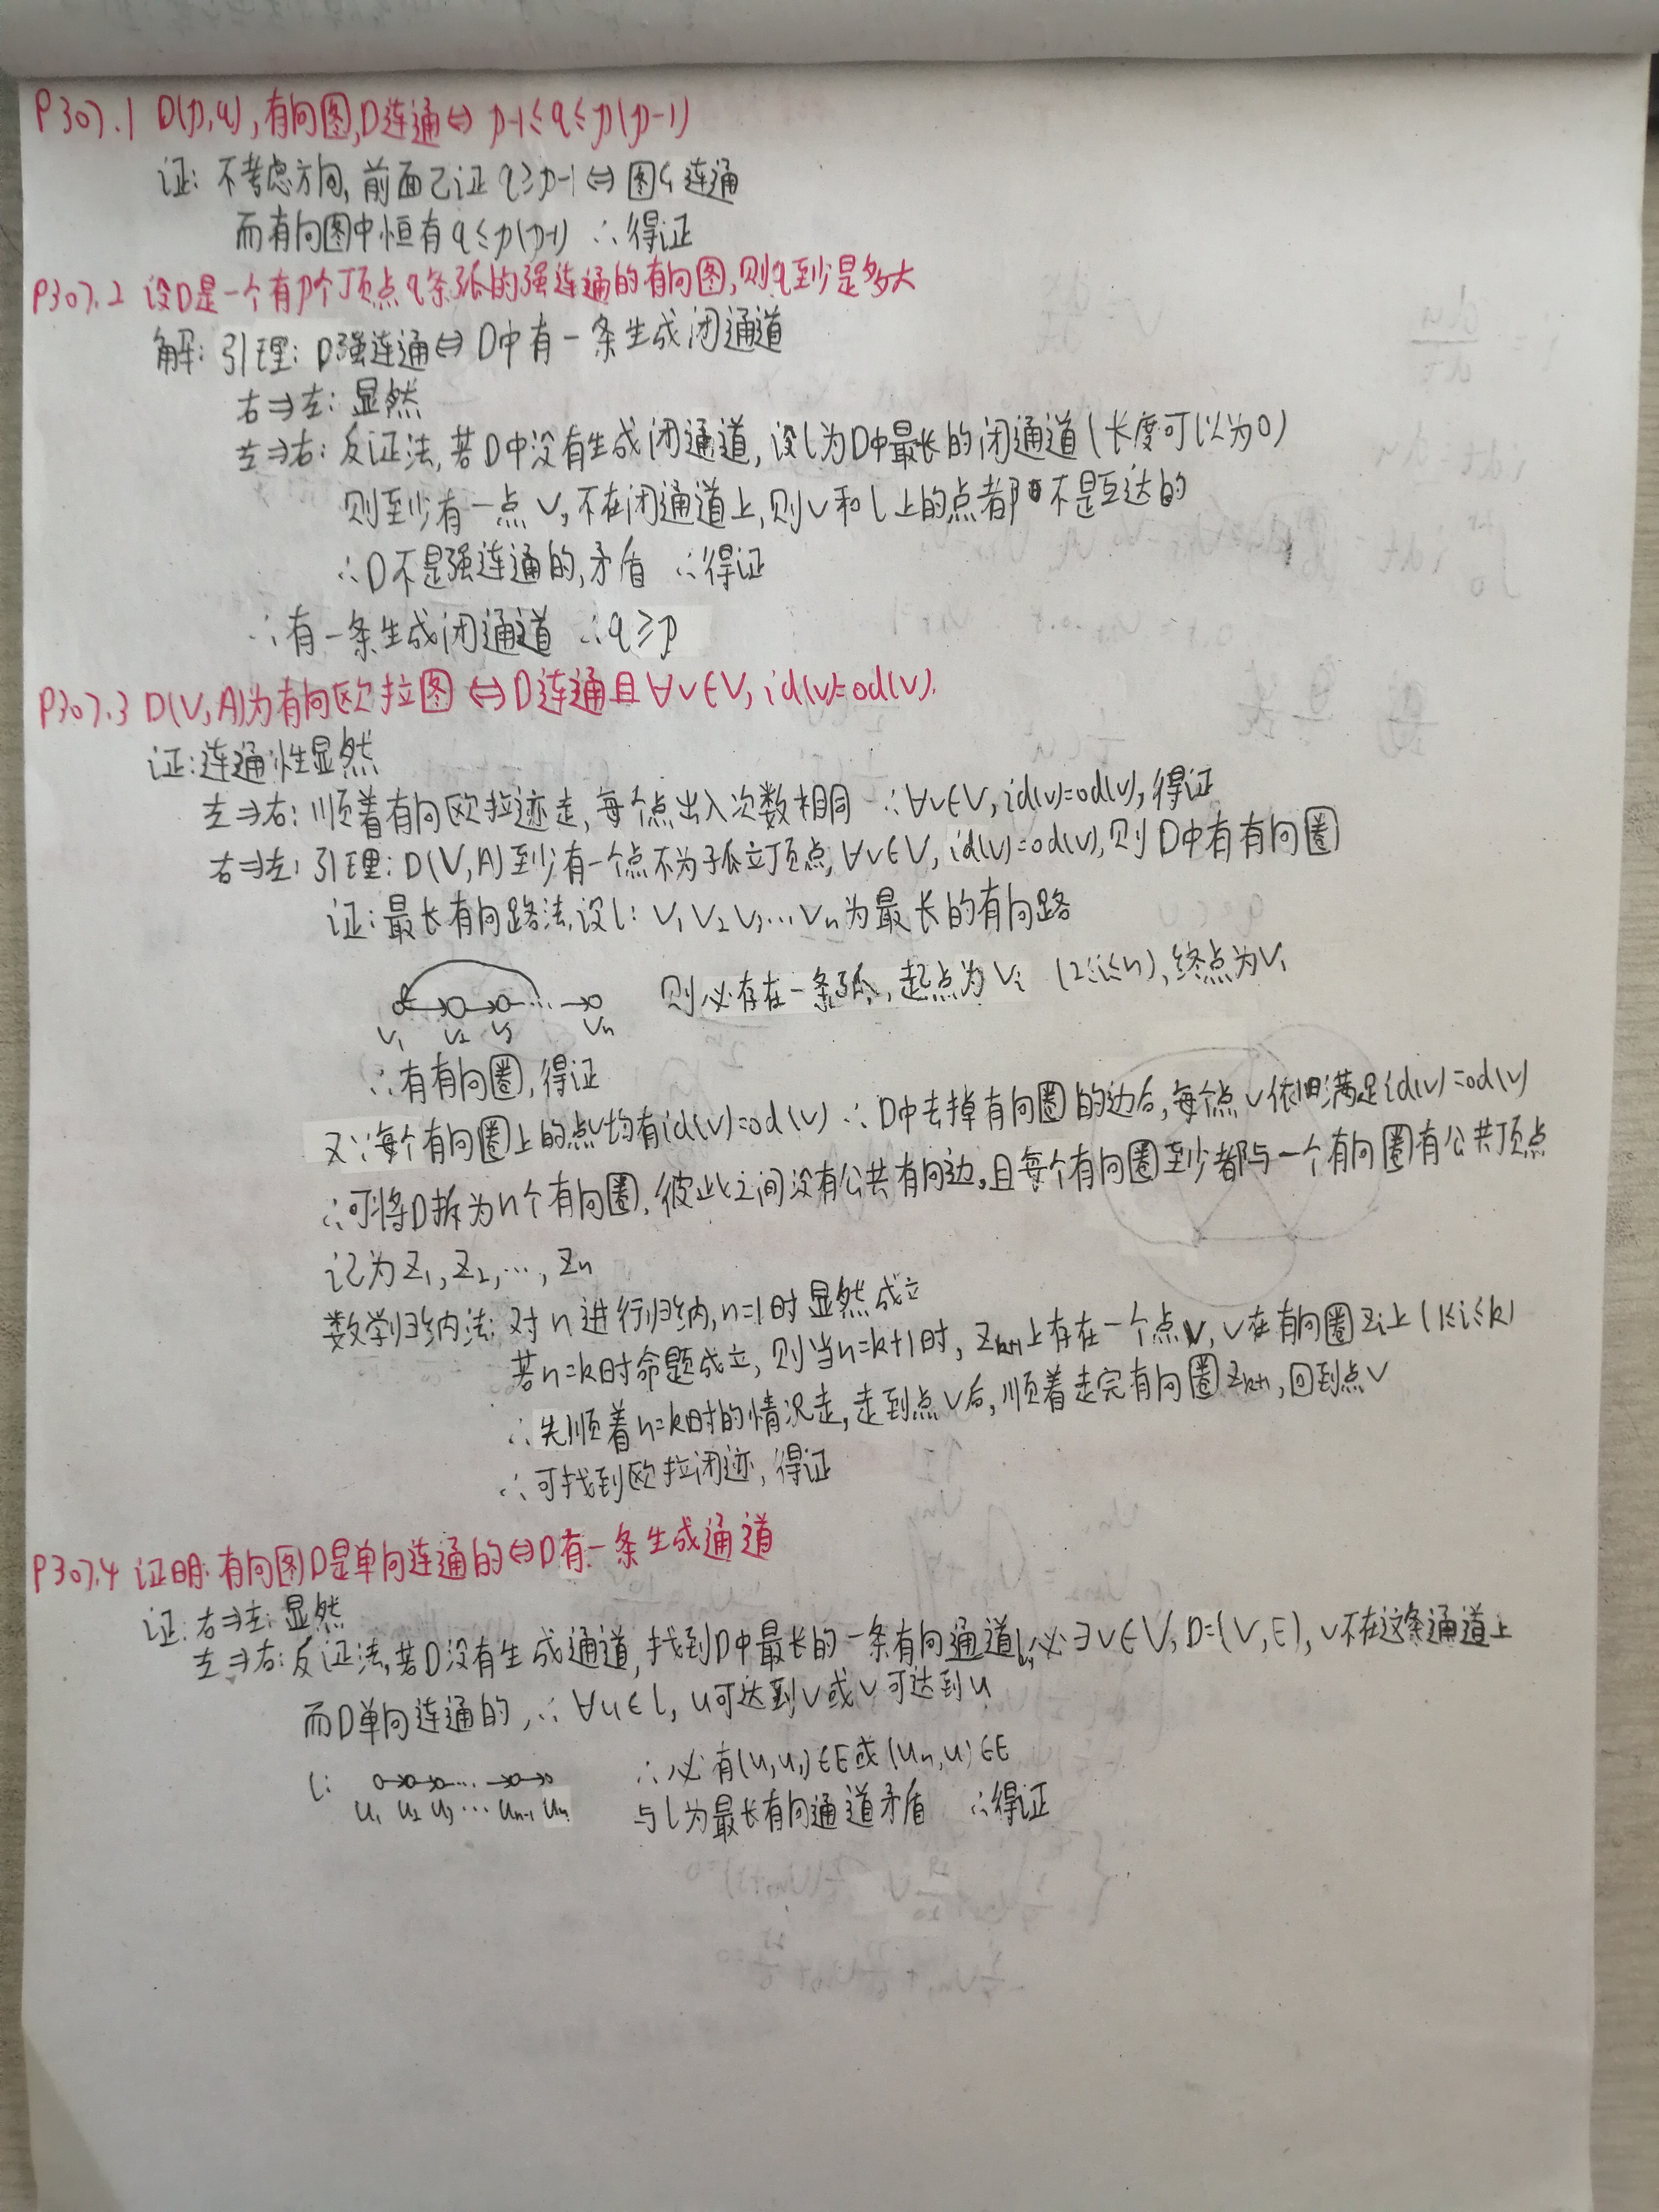 P307.1 D(p,q),有向图,D连通⇔p-1≤q≤p(p-1)
证:不考虑方向,前面已证q≥p-1⇔图G连通
而有向图中恒有q≤p(p-1) ∴得证
P307.2 设D是一个有p个顶点q条弧的强连通的有向图,则q至少是多大
解:引理:D强连通⇔D中有一条生成闭通道
右⇒左:显然
左⇒右:反证法,若D中没有生成闭通道,设l为D中最长的闭通道(长度可以为0)
则至少有一点v,不在闭通道上,则v和l上的点都不是互达的
∴D不是强连通的,矛盾 ∴得证
∴有一条生成闭通道 ∴q≥p
P307.3 D(V,A)为有向欧拉图⇔D连通且∀v∈V,id(v)=od(v).
证:连通性显然
左⇒右:顺着有向欧拉迹走,每个点出入次数相同 ∴∀v∈V,id(v)=od(v),得证
右⇒左:引理:D(V,A)至少有一个点不为孤立顶点,∀v∈V,id(v)=od(v),则D中有有向圈
证:最长有向路法,设l:v₁v₂v₃…vₙ为最长的有向路
则必存在一条弧,起点为vᵢ (2≤i≤n),终点为v₁
v₁ v₂ v₃ … vₙ
∴有有向圈,得证
又∵每个有向圈上的点v均有id(v)=od(v) ∴D中去掉有向圈的边后,每个点v依旧满足id(v)=od(v)
∴可将D拆为n个有向圈,彼此之间没有公共有向边,且每个有向圈至少都与一个有向圈有公共顶点
记为Z₁,Z₂,…,Zₙ
数学归纳法:对n进行归纳,n=1时显然成立
若n=k时命题成立,则当n=k+1时,Zₖ₊₁上存在一个点v,v在有向圈Zᵢ上(1≤i≤k)
∴先顺着n=k时的情况走,走到点v后,顺着走完有向圈Zₖ₊₁,回到点v
∴可找到欧拉闭迹,得证
P307.4 证明:有向图D是单向连通的⇔D有一条生成通道
证:右⇒左:显然
左⇒右:反证法,若D没有生成通道,找到D中最长的一条有向通道l,必∃v∈V,D=(V,E),v不在这条通道上
而D单向连通的,∴∀u∈l,u可达到v或v可达到u
l: … ∴必有(u,u₁)∈E或(uₙ,u)∈E
u₁ u₂ u₃ … uₙ₋₁ uₙ 与l为最长有向通道矛盾 ∴得证